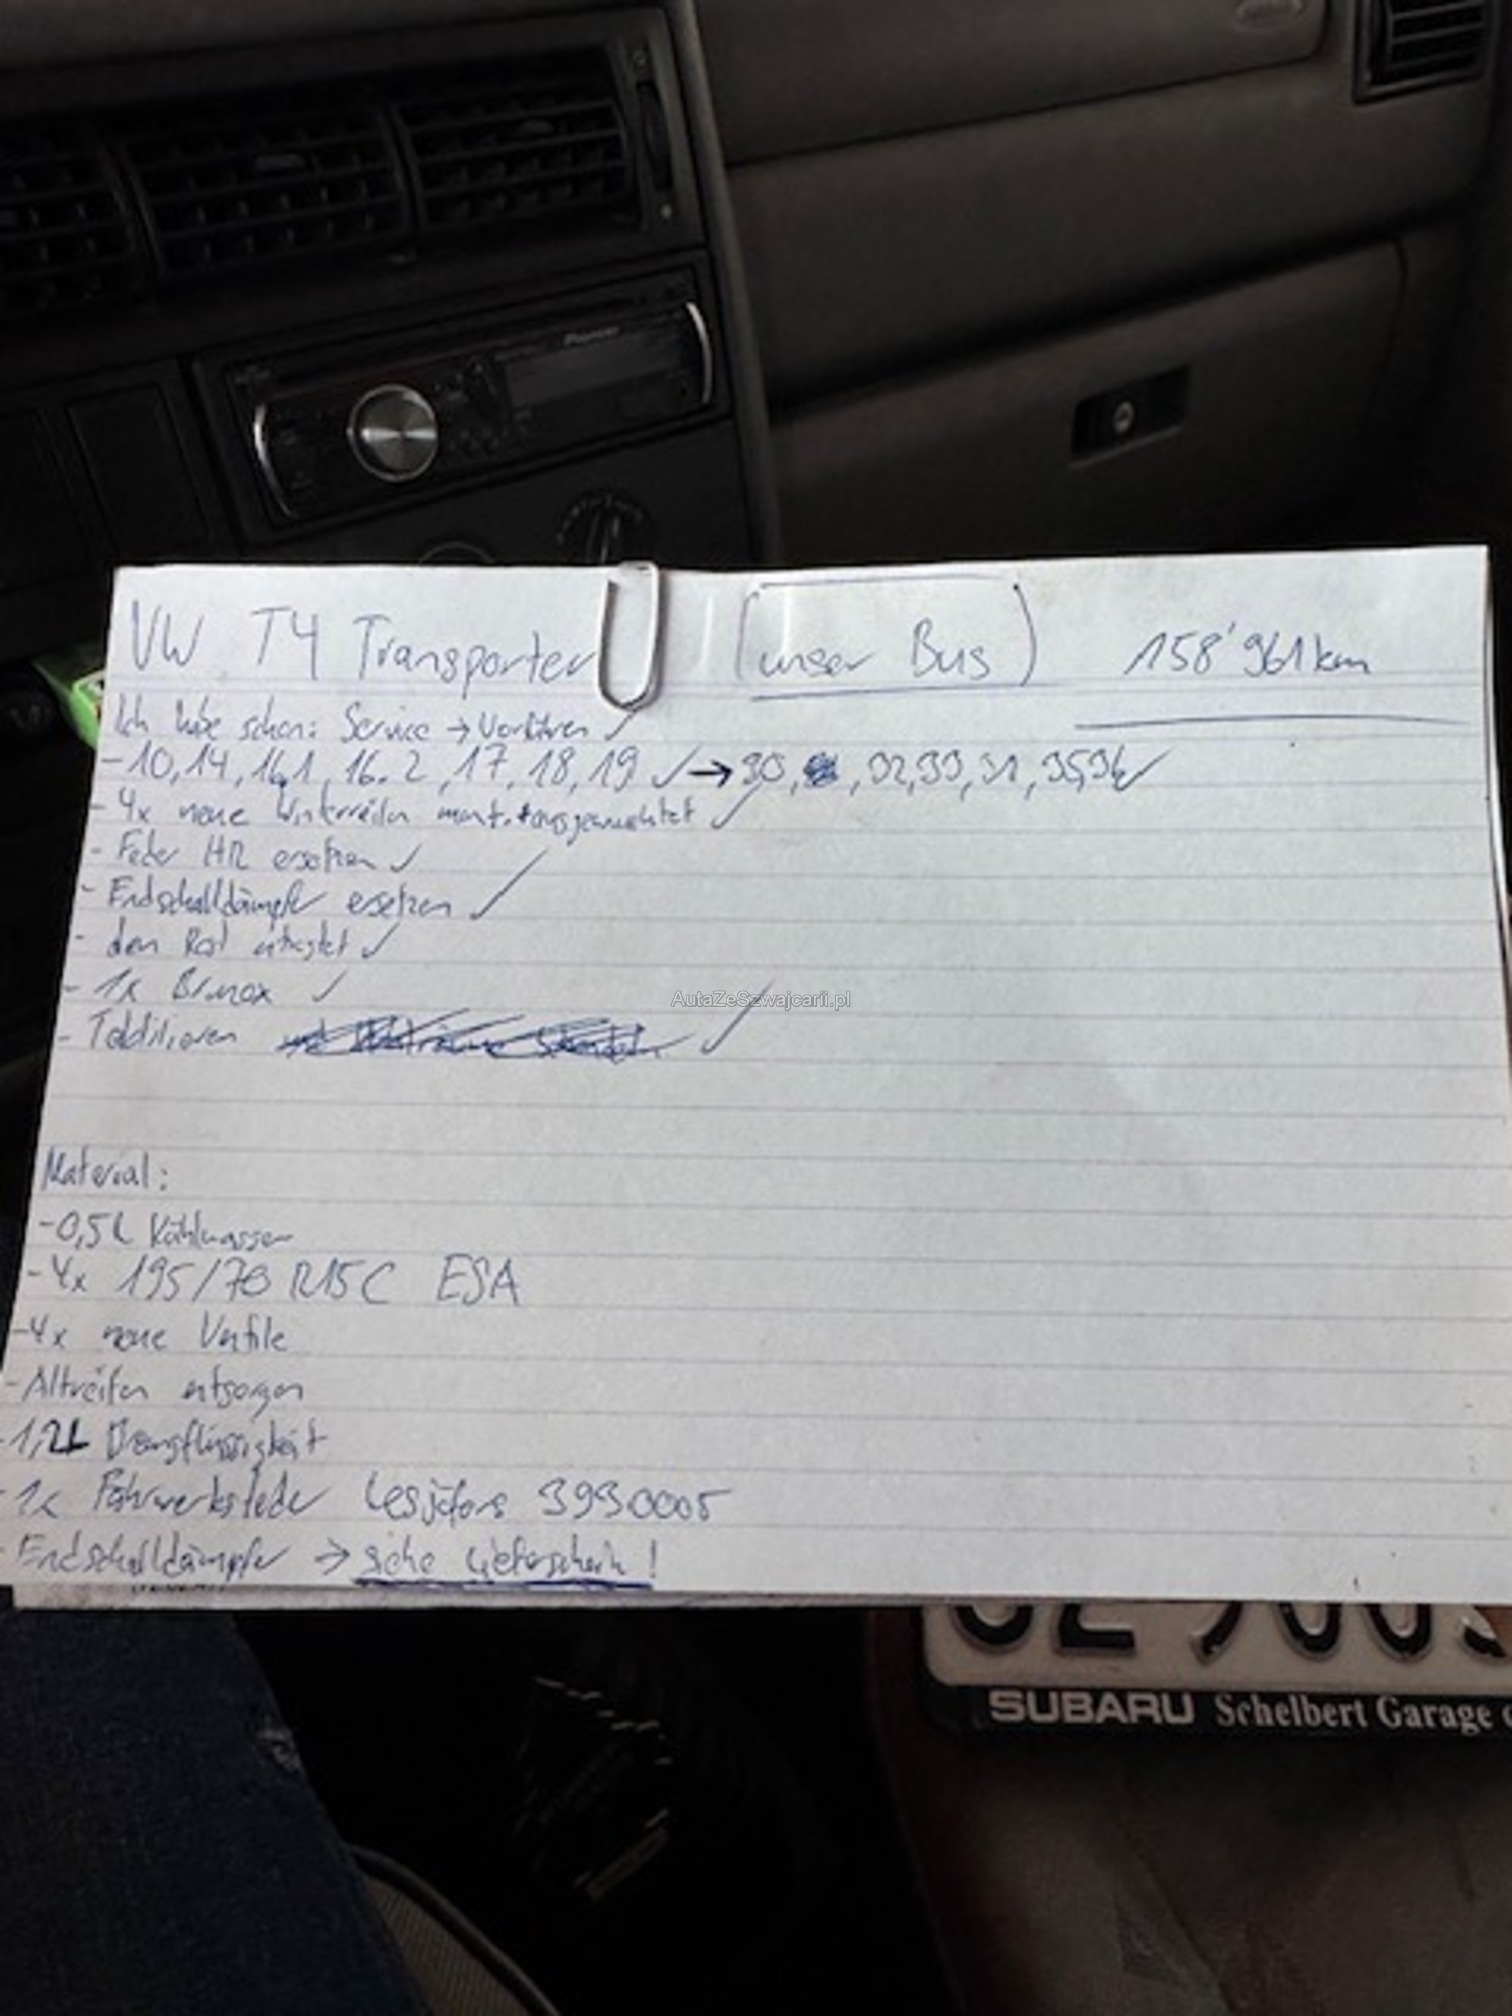 Pioneer
VW T4 Transporter (unser Bus) 158'961km
Ich habe schon: Service → Vorführen ✓
-10, 14, 16.1, 16.2, 17, 18, 19 ✓ → 30, 32, 33, 31, 35, 36 ✓
- 4x neue Winterreifen mont. + ausgewuchtet ✓
- Feder HR ersetzen ✓
- Endschalldämpfer ersetzen ✓
- den Rost entrostet ✓
- 1x Brunox ✓
- ✓
Material:
-0,5L Kühlwasser
-4x 195/70 R15C ESA
-4x neue Ventile
-Altreifen entsorgen
-1,2L Bremsflüssigkeit
-1x Fahrwerksfeder Lesjöfors
Endschalldämpfer → siehe Lieferschein!
AutaZeSzwajcarii.pl
SUBARU Schelbert Garage